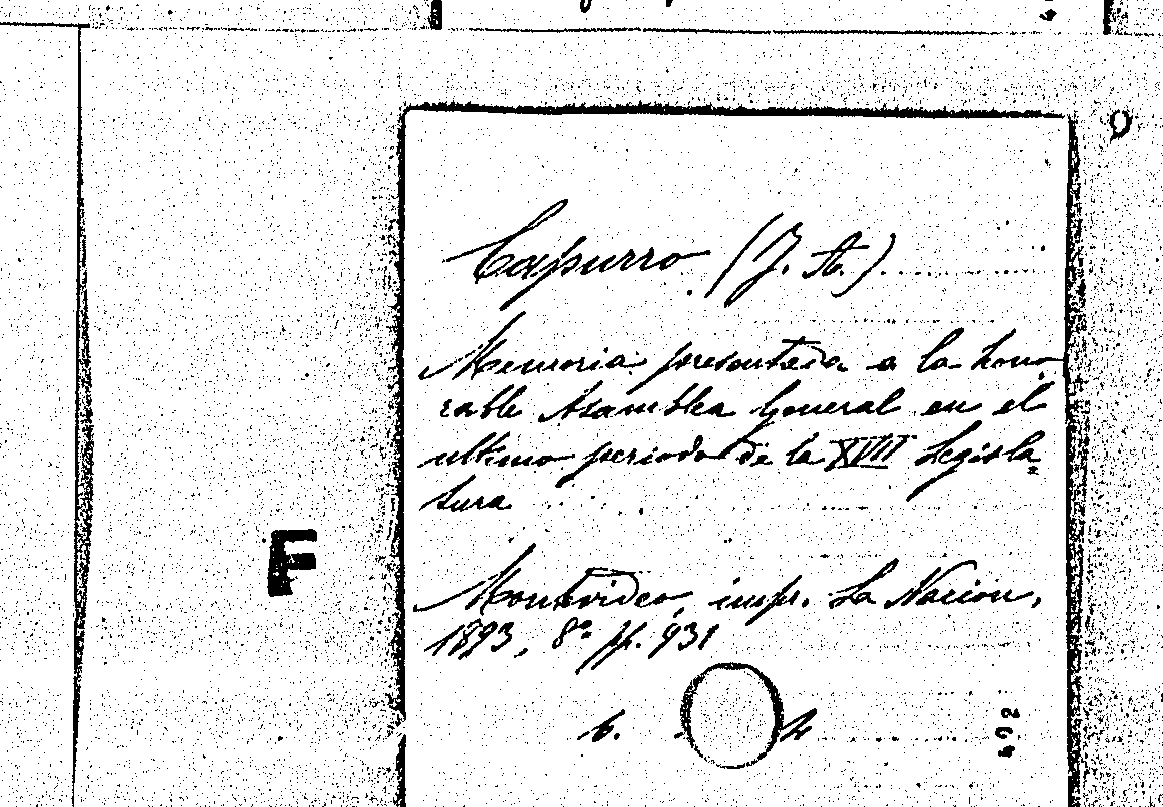 Capurro (J. A.)
Memoria presentada a la hono-
rable Asamblea General en el
ultimo periodo de la XVII Legisla=
tura
F
Montevideo, impr. La Nacion,
1893, 8º pp. 931
b.
492